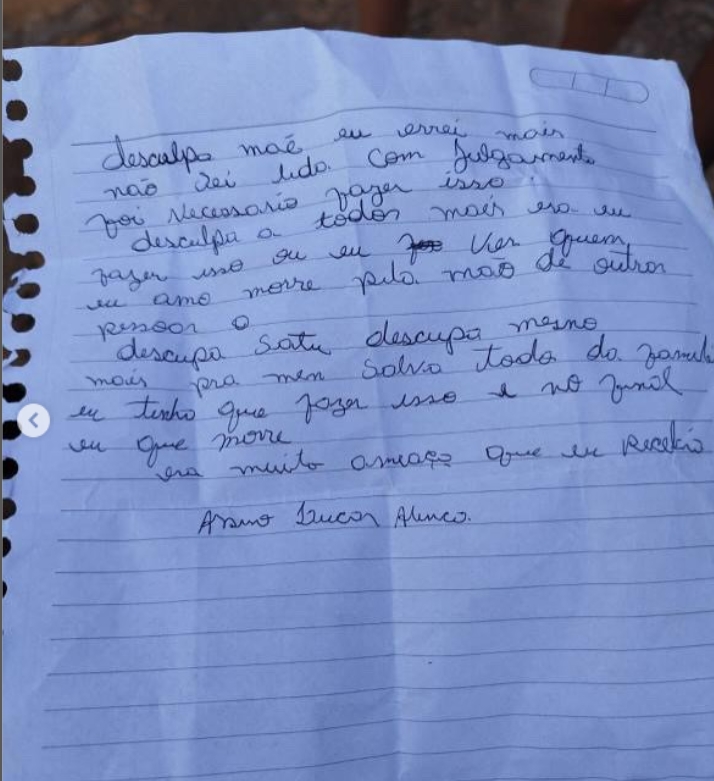 desculpa maẽ eu errei mais
não sei lida com julgamento
foi necessario fazer isso.
desculpa a todos mais era eu
fazer isso ou eu ver quem
eu amo morre pela mão de outros
pessoas
descupa Satu descupa mesmo
mais pra men salva toda da famili
eu tenho que fazer isso e no final
eu que morre
era muito ameaça que eu recebia
Lucas Alenco.